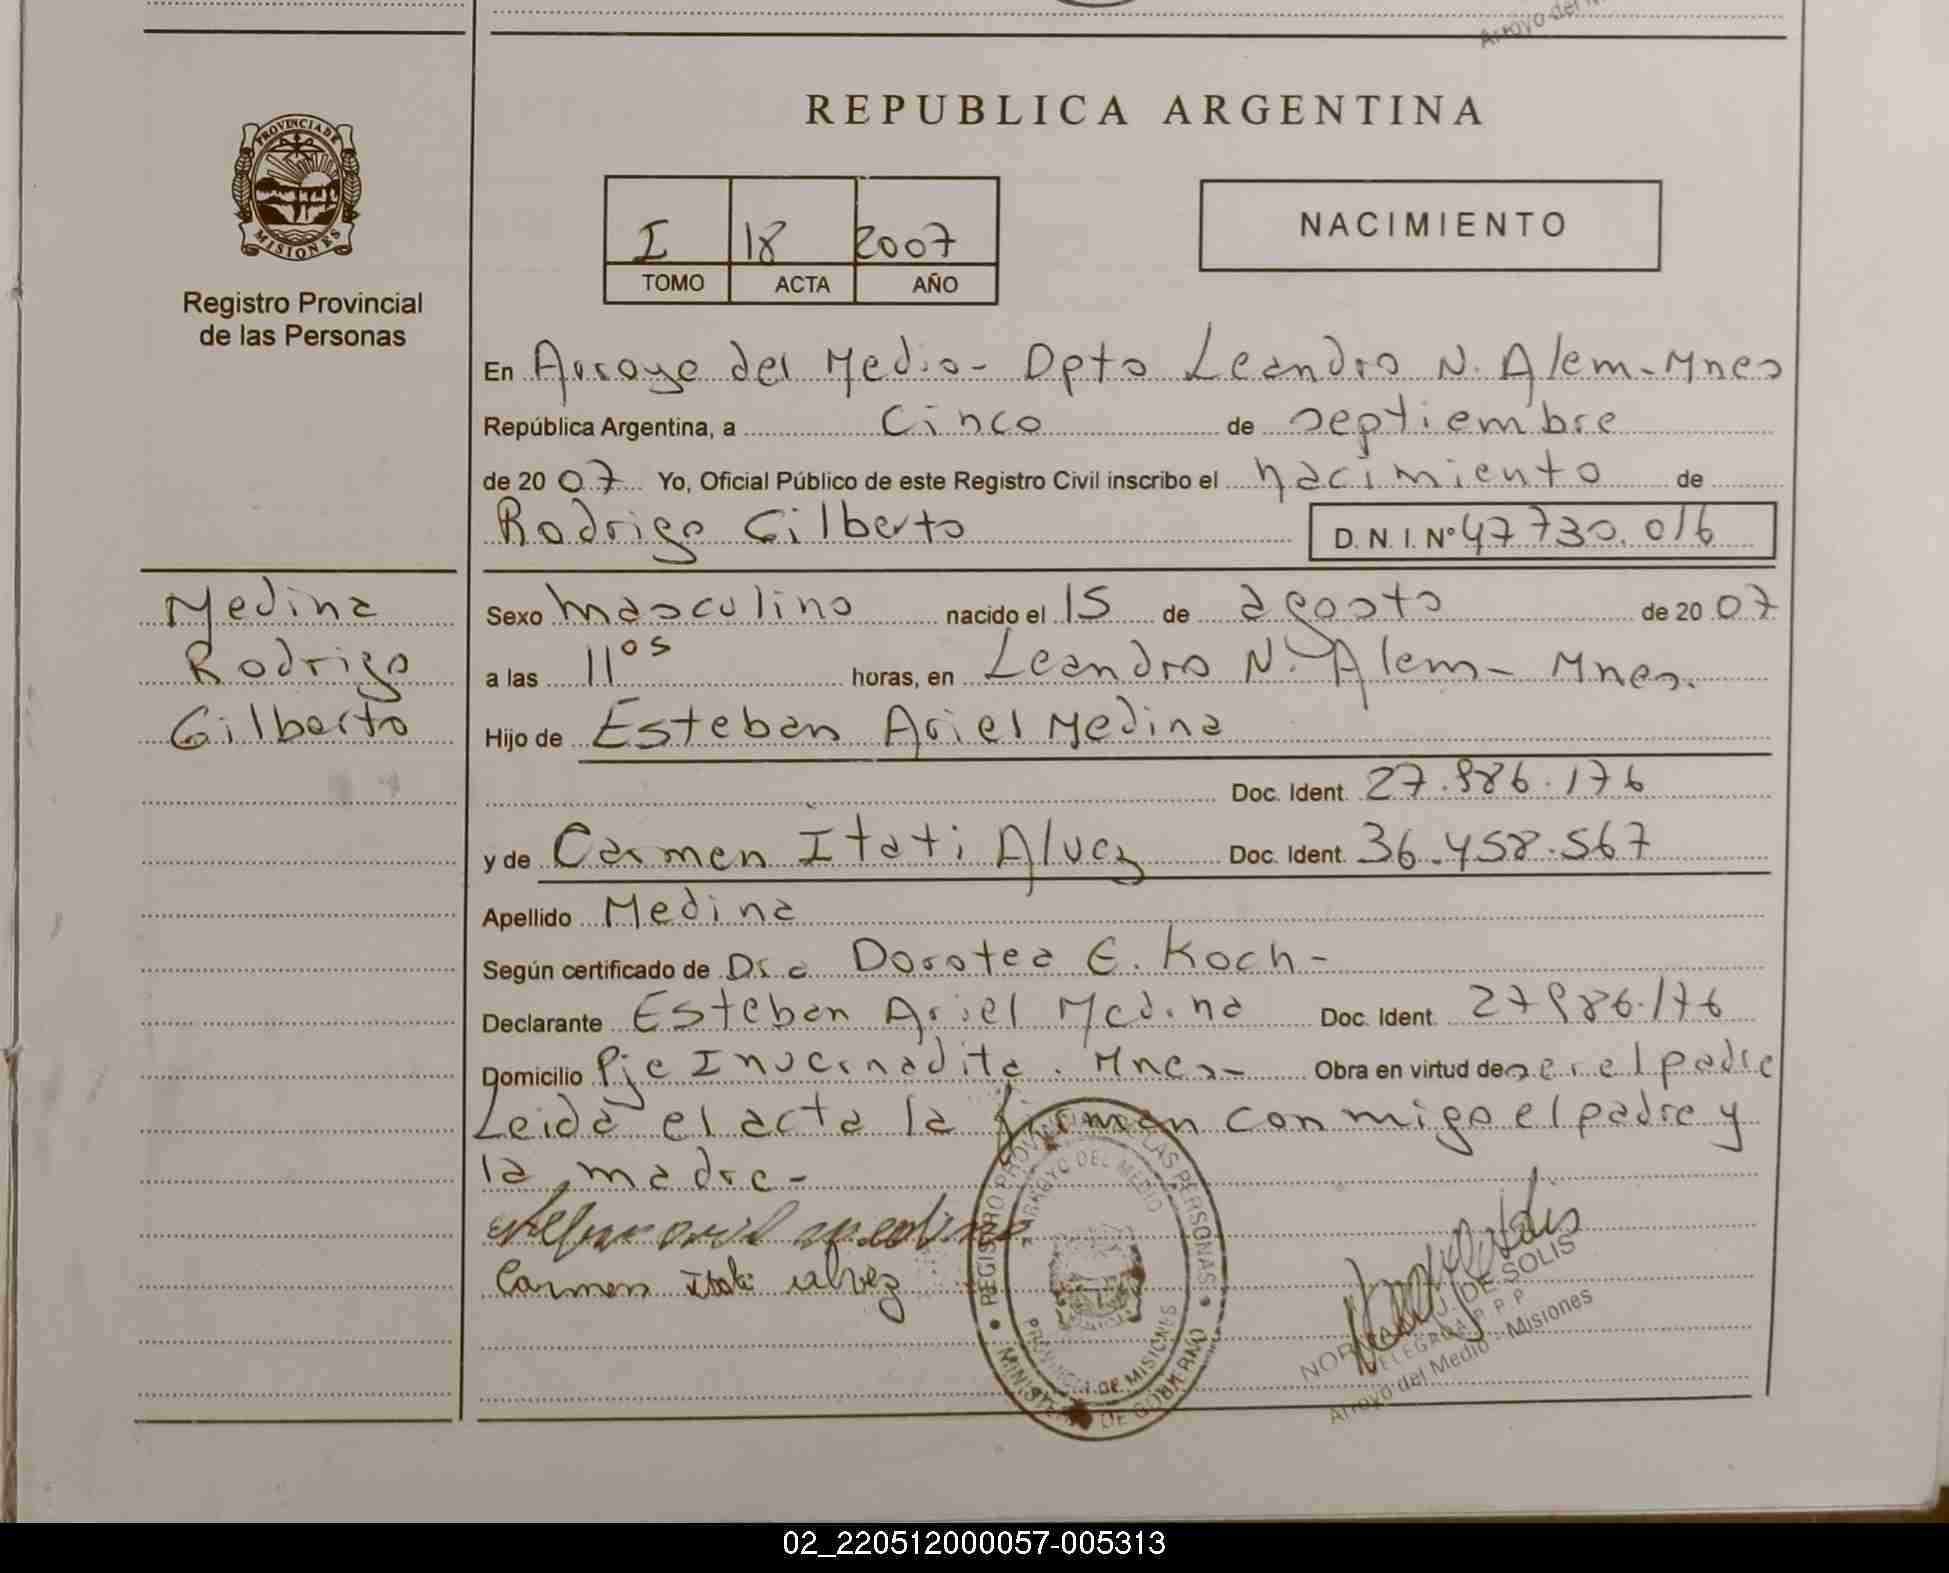 Arroyo del M
REPUBLICA ARGENTINA
PROVINCIA DE
MISIONES
Registro Provincial
de las Personas
I 18 2007
TOMO ACTA AÑO
NACIMIENTO
En Arroyo del Medio - Dpto Leandro N. Alem - Mnes
República Argentina, a cinco de septiembre
de 2007 Yo, Oficial Público de este Registro Civil inscribo el nacimiento de
Rodrigo Gilberto D. N. I. Nº 47 730.016
Medina
Rodrigo
Gilberto
Sexo masculino nacido el 15 de agosto de 2007
a las 11 05 horas, en Leandro N. Alem - Mnes.
Hijo de Esteban Ariel Medina
Doc. Ident. 27.986.176
y de Carmen Itati Alvez Doc. Ident. 36.458.567
Apellido Medina
Según certificado de Dra Dorotea E. Koch -
Declarante Esteban Ariel Medina Doc. Ident. 27986.176
Domicilio Pje Invernadita. Mnes - Obra en virtud de ser el padre
Leida el acta la firman conmigo el padre y
la madre -
Carmen Itati alvez
REGISTRO PROVINCIAL DE LAS PERSONAS
MINISTERIO DE GOBIERNO
ARROYO DEL MEDIO
PROVINCIA DE MISIONES
J. DE SOLIS
DELEGADA R P P
Arroyo del Medio - Misiones
02_220512000057-005313